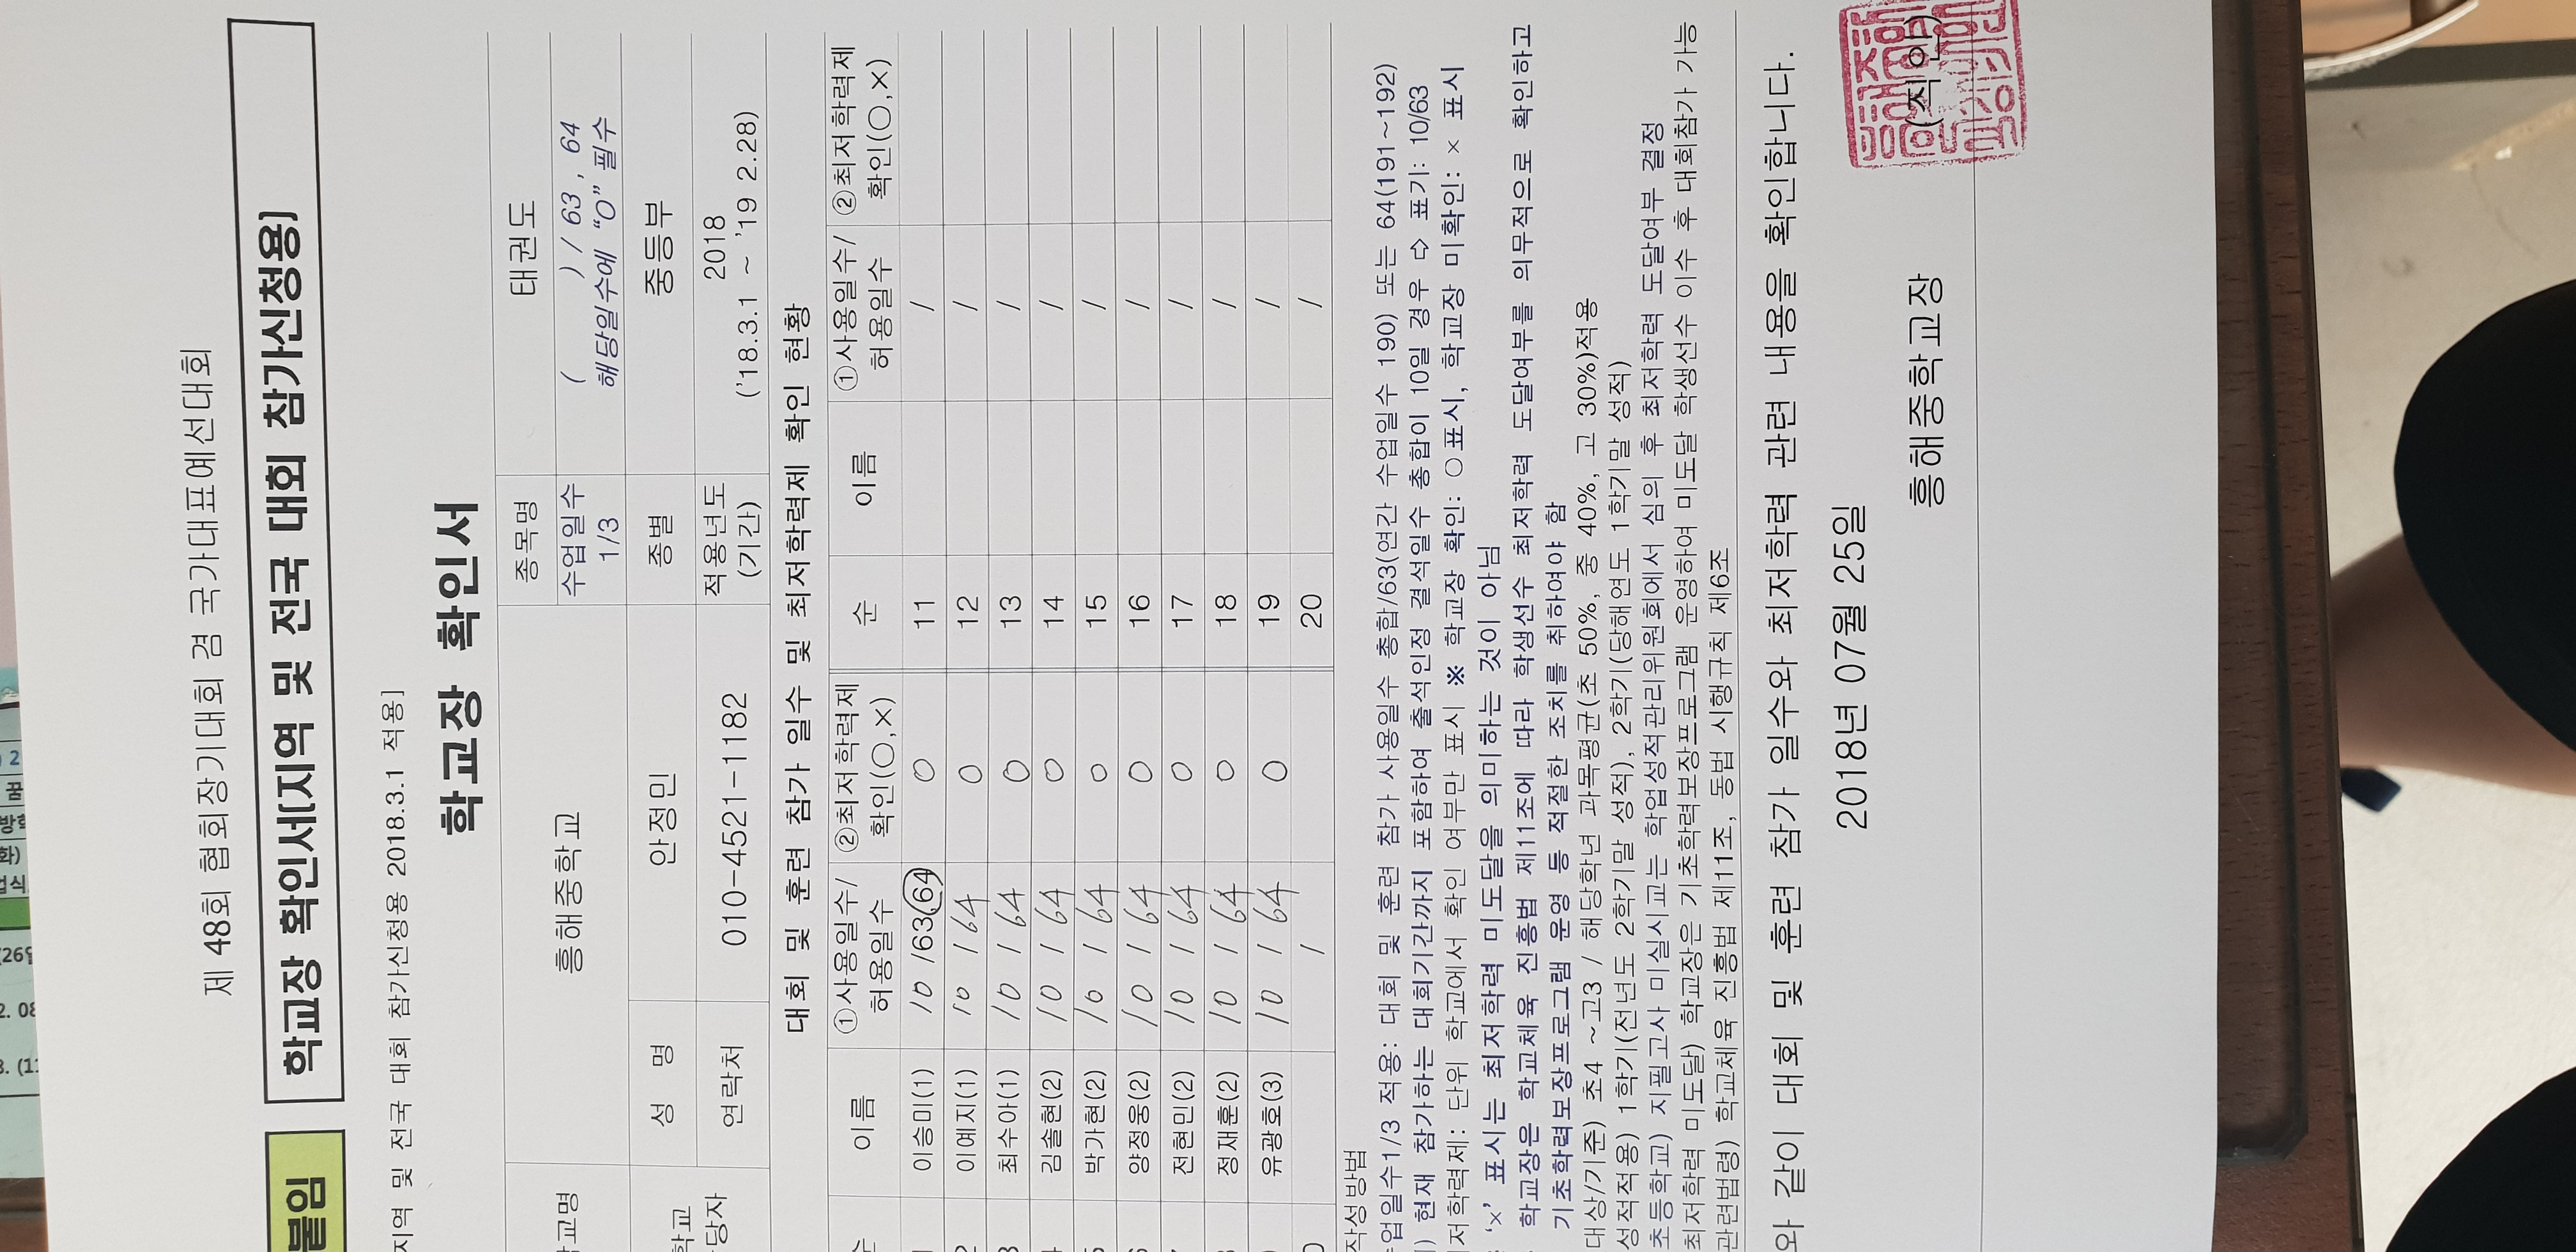 제 48회 협회장기대회 겸 국가대표예선대회
붙임 학교장 확인서[지역 및 전국 대회 참가신청용]
지역 및 전국 대회 참가신청용 2018.3.1 적용]
학교장 확인서
교명 흥해중학교 종목명 태권도
수업일수 1/3 ( ) / 63 , 64
해당일수에 "O" 필수
학교 당자 성 명 안정민 종별 중등부
연락처 010-4521-1182 적용년도 (기간) 2018
('18.3.1 ~ '19 2.28)
대회 및 훈련 참가 일수 및 최저학력제 확인 현황
이름 ①사용일수/ 허용일수 ②최저학력제 확인(○,×) 순 이름 ①사용일수/ 허용일수 ②최저학력제 확인(○,×)
이승미(1) 10 /63,64 ○ 11 /
이예지(1) 10 / 64 ○ 12 /
최수아(1) 10 / 64 ○ 13 /
김솔현(2) 10 / 64 ○ 14 /
박가현(2) 10 / 64 ○ 15 /
양정웅(2) 10 / 64 ○ 16 /
전현민(2) 10 / 64 ○ 17 /
정재훈(2) 10 / 64 ○ 18 /
유광호(3) 10 / 64 ○ 19 /
/ 20 /
작성방법
업일수1/3 적용: 대회 및 훈련 참가 사용일수 총합/63(연간 수업일수 190) 또는 64(191~192)
) 현재 참가하는 대회기간까지 포함하여 출석인정 결석일수 총합이 10일 경우 ⇨ 표기: 10/63
저학력제: 단위 학교에서 확인 여부만 표시 ※ 학교장 확인: ○표시, 학교장 미확인: × 표시
'×' 표시는 최저학력 미도달을 의미하는 것이 아님
학교장은 학교체육 진흥법 제11조에 따라 학생선수 최저학력 도달여부를 의무적으로 확인하고
기초학력보장프로그램 운영 등 적절한 조치를 취하여야 함
대상/기준) 초4 ~고3 / 해당학년 과목평균(초 50%, 중 40%, 고 30%)적용
성적적용) 1학기(전년도 2학기말 성적), 2학기(당해연도 1학기말 성적)
초등학교) 지필고사 미실시교는 학업성적관리위원회에서 심의 후 최저학력 도달여부 결정
최저학력 미도달) 학교장은 기초학력보장프로그램 운영하여 미도달 학생선수 이수 후 대회참가 가능
관련법령) 학교체육 진흥법 제11조, 동법 시행규칙 제6조
와 같이 대회 및 훈련 참가 일수와 최저학력 관련 내용을 확인합니다.
2018년 07월 25일
흥해중학교장 (직인)